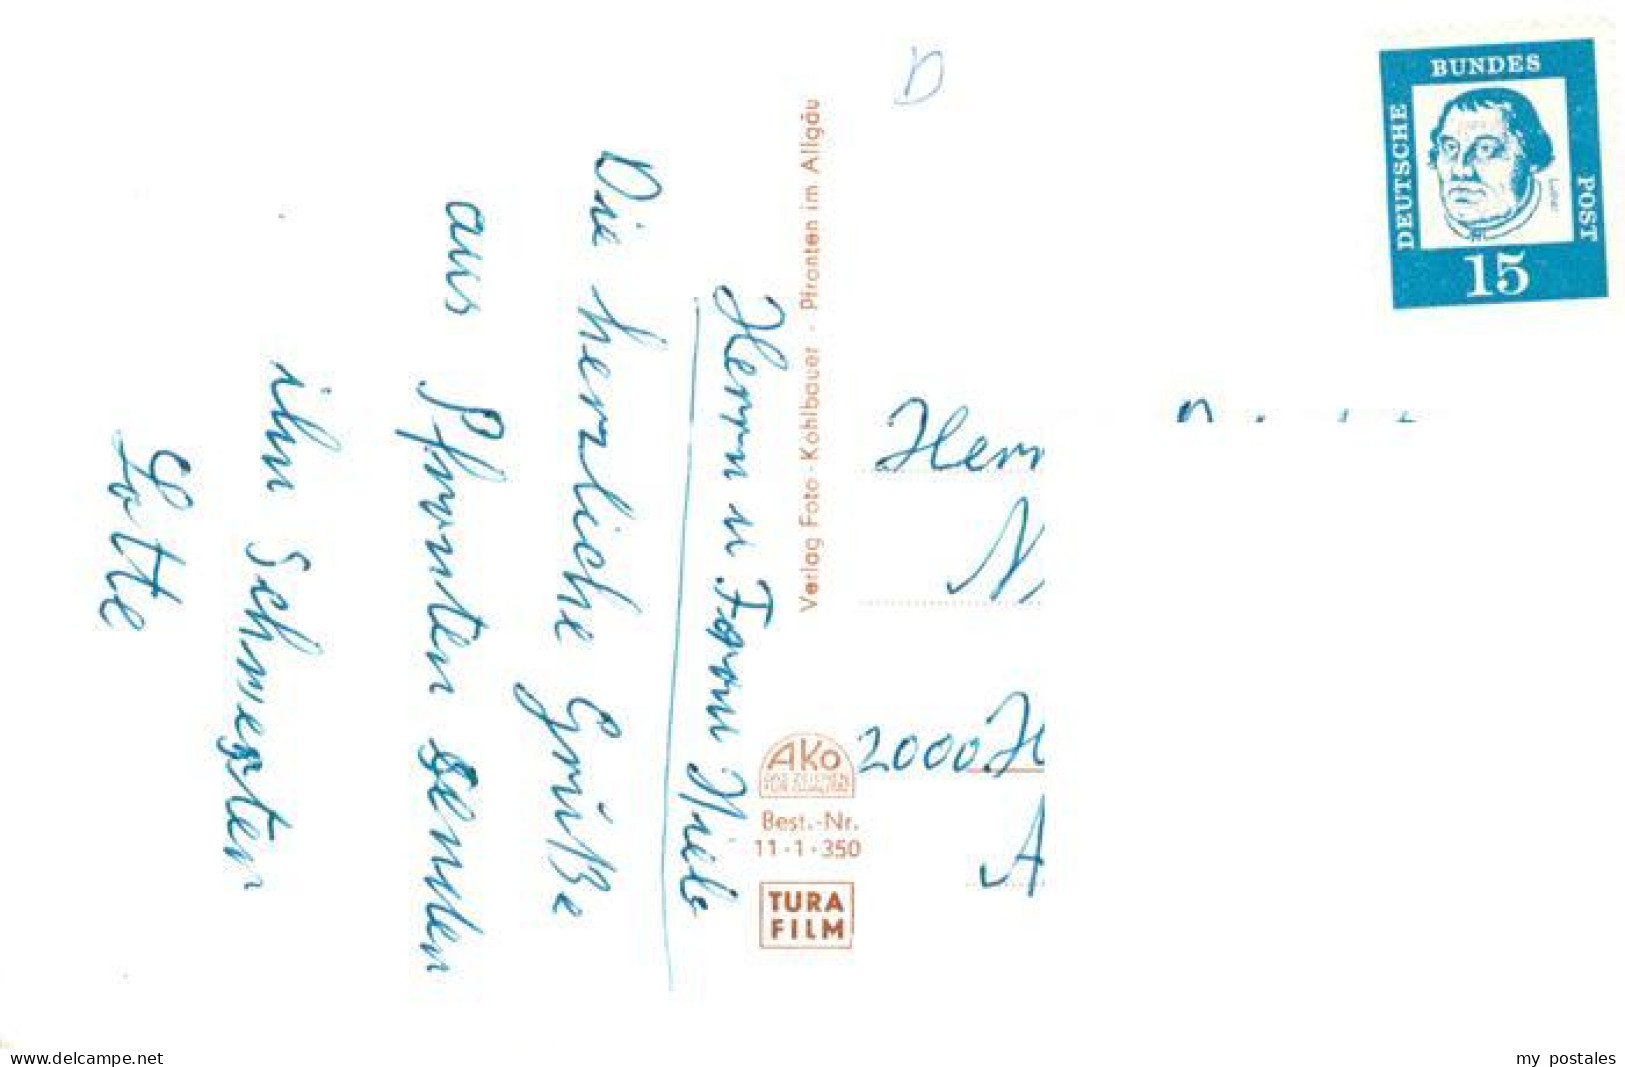 Herrn u Frau Niels
Die herzliche Grüße
aus Pfronten senden
ihn Schwestern
Lotte
Verlag Foto-Kohlbauer · Pfronten im Allgäu
AKO
DAS ZEICHEN
FÜR QUALITÄT
Best.-Nr.
11·1·350
TURA
FILM
D
DEUTSCHE
BUNDES
POST
Luther
15
Herr
N
2000 H
A
www.delcampe.net
my postales